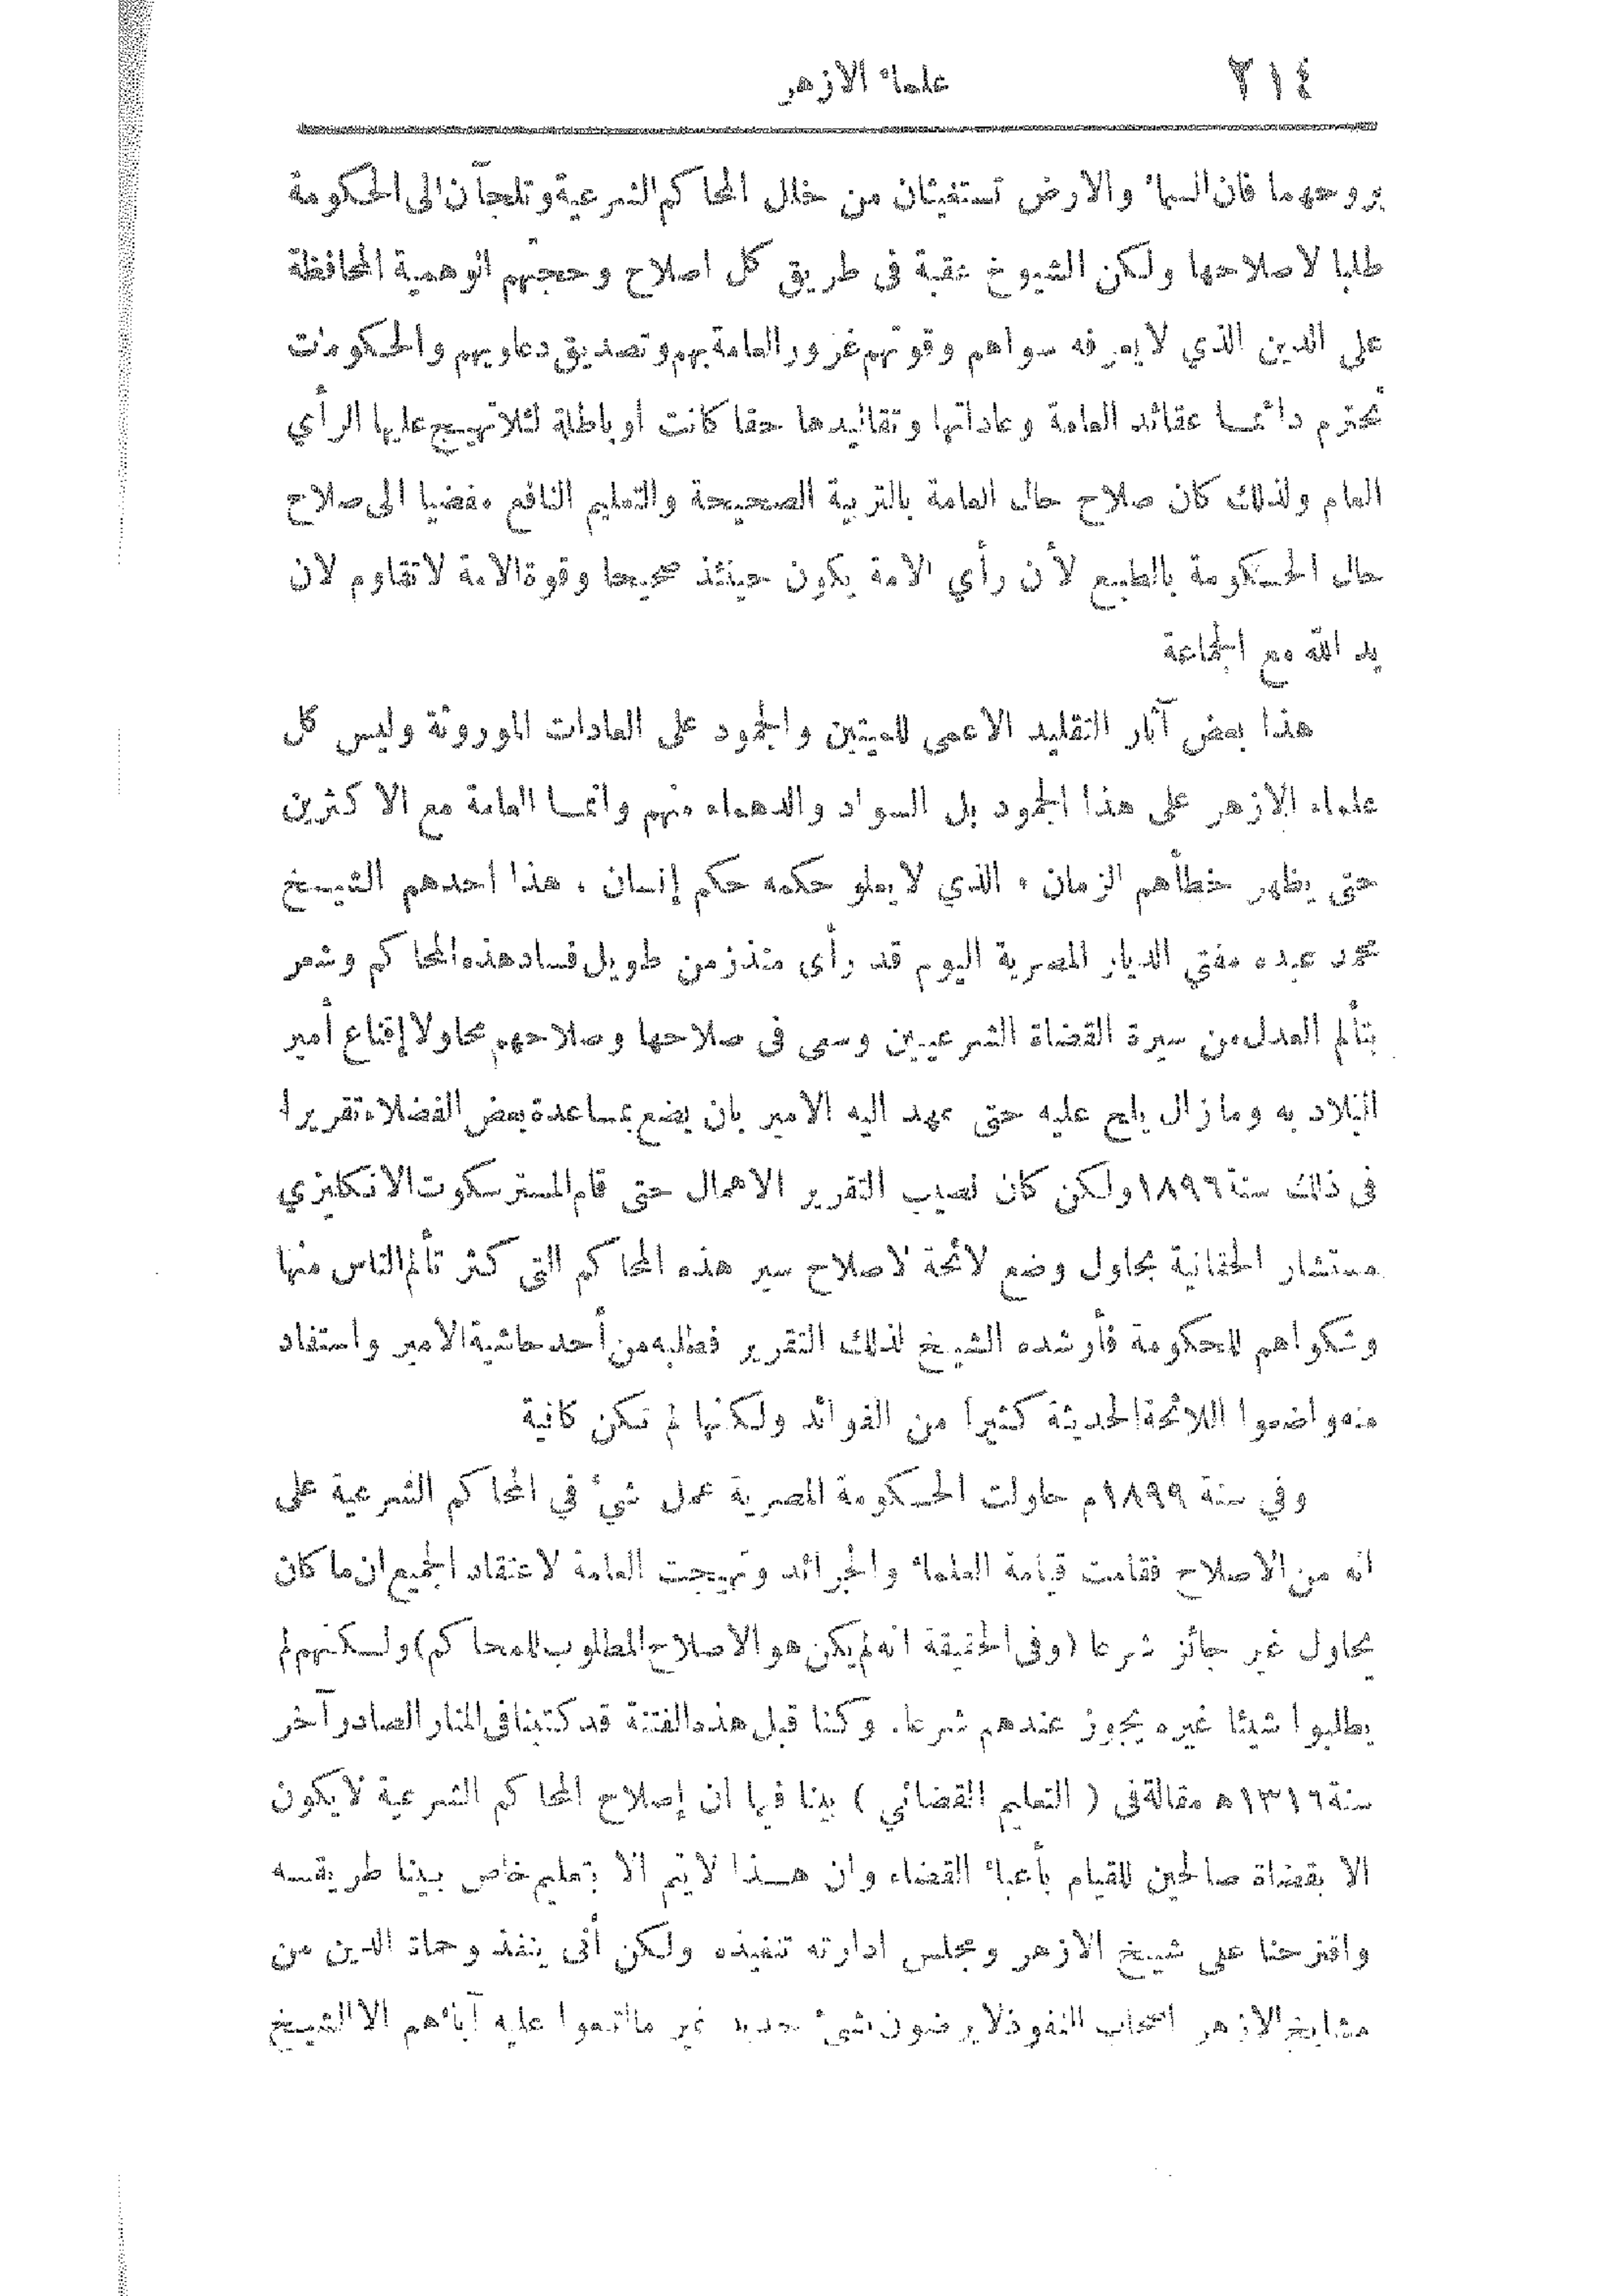 ٢١٤ علماء الازهر
بروحهما فان السماء والارض تستغيثان من خلل المحاكم الشرعية وتلجآن الى الحكومة
طلبا لاصلاحها ولكن الشيوخ عقبة فى طريق كل اصلاح وحجتهم الوهمية المحافظة
على الدين الذي لا يعرفه سواهم وقوتهم غرور العامة بهم وتصديق دعاويهم والحكومات
تحترم دائما عقائد العامة وعاداتها وتقاليدها حقا كانت او باطلة لئلا تهيج عليها الرأي
العام ولذلك كان صلاح حال العامة بالتربية الصحيحة والتعليم النافع مفضيا الى صلاح
حال الحكومة بالطبع لأن رأي الامة يكون حينئذ صحيحا وقوة الامة لا تقاوم لان
يد الله مع الجماعة
هذا بعض آثار التقليد الاعمى للميتين والجمود على العادات الموروثة وليس كل
علماء الازهر على هذا الجمود بل السواد والدهماء منهم وانما العامة مع الاكثرين
حتى يظهر خطأهم الزمان ، الذي لا يعلو حكمه حكم إنسان ، هذا احدهم الشيخ
محمد عبده مفتي الديار المصرية اليوم قد رأى منذ زمن طويل فساد هذه المحاكم وشعر
بتألم العدل من سيرة القضاة الشرعيين وسعى فى صلاحها وصلاحهم محاولا إقناع أمير
البلاد به وما زال يلح عليه حتى عهد اليه الامير بان يضع بمساعدة بعض الفضلاء تقريرا
فى ذلك سنة ١٨٩٦ ولكن كان نصيب التقرير الاهمال حتى قام المستر سكوت الانكليزي
مستشار الحقانية يحاول وضع لائحة لاصلاح سير هذه المحاكم التى كثر تألم الناس منها
وشكواهم للحكومة فأرشده الشيخ لذلك التقرير فطلبه من أحد حاشية الامير واستفاد
منه واضعوا اللائحة الحديثة كثيرا من الفوائد ولكنها لم تكن كافية
وفي سنة ١٨٩٩م حاولت الحكومة المصرية عمل شيء في المحاكم الشرعية على
انه من الاصلاح فقامت قيامة العلماء والجرائد وتهيجت العامة لاعتقاد الجميع ان ما كان
يحاول غير جائز شرعا (وفى الحقيقة انه لم يكن هو الاصلاح المطلوب للمحاكم) ولكنهم لم
يطلبوا شيئا غيره يجوز عندهم شرعا. وكنا قبل هذه الفتنة قد كتبنا فى المنار الصادر آخر
سنة ١٣١٦ ه مقالة فى ( التعليم القضائي ) بينا فيها ان إصلاح المحاكم الشرعية لا يكون
الا بقضاة صالحين للقيام بأعباء القضاء وان هذا لا يتم الا بتعليم خاص بينا طريقه
واقترحنا على شيخ الازهر ومجلس ادارته تنفيذه ولكن أنى ينفذ وحماة الدين من
مشايخ الازهر اصحاب النفوذ لا يرضون شيء جديد غير ما اتبعوا عليه آباءهم الا الشيخ